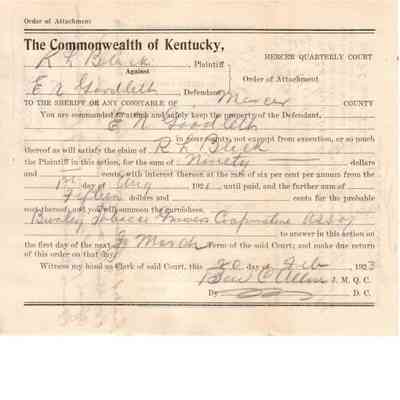 Order of Attachment
The Commonwealth of Kentucky,
MERCER QUARTERLY COURT
R L Black Plaintiff
Against
Order of Attachment
E N Goodlett Defendant
TO THE SHERIFF OR ANY CONSTABLE OF Mercer COUNTY
You are commanded to attach and safely keep the property of the Defendant,
E N Goodlett
in your county, not exempt from execution, or so much
thereof as will satisfy the claim of R L Black
the Plaintiff in this action, for the sum of Ninety dollars
and cents, with interest thereon at the rate of six per cent per annum from the
1st day of Aug 192 until paid, and the further sum of
Fifteen dollars and cents for the probable
cost thereof, and you will summon the garnishees,
Burley Tobacco Growers Cooperative Assoc
to answer in this action on
the first day of the next March Term of the said Court; and make due return
of this order on that day
Witness my hand as Clerk of said Court, this 20 day of Feb 1923
Ben C Allin J. M. Q. C.
By D. C.